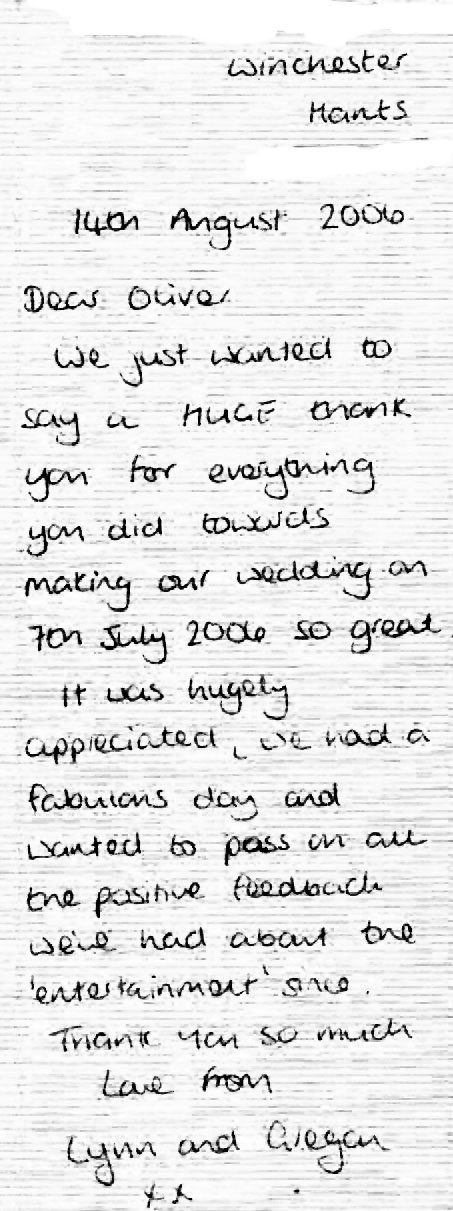 Winchester
Hants
14th August 2006
Dear Oliver
We just wanted to
say a HUGE thank
you for everything
you did towards
making our wedding on
7th July 2006 so great.
It was hugely
appreciated, we had a
fabulous day and
wanted to pass on all
the positive feedback
we've had about the
'entertainment' since.
Thank you so much
Love from
Lynn and Gregan
xx